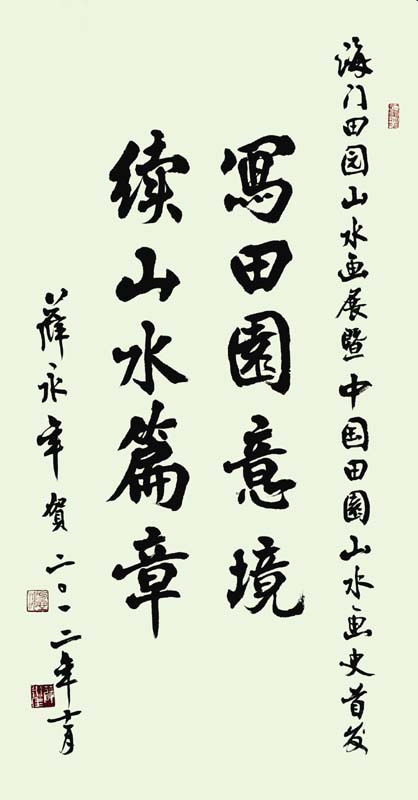 海门田园山水画展暨中国田園山水画史首发
寫田園意境
續山水篇章
薛永年賀二〇一二年十月